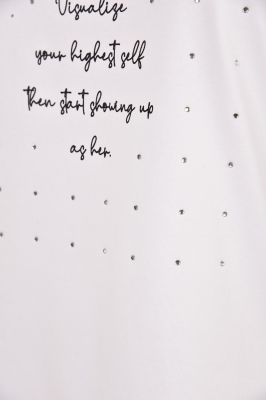 Visualize
your highest self
then start showing up
as her.